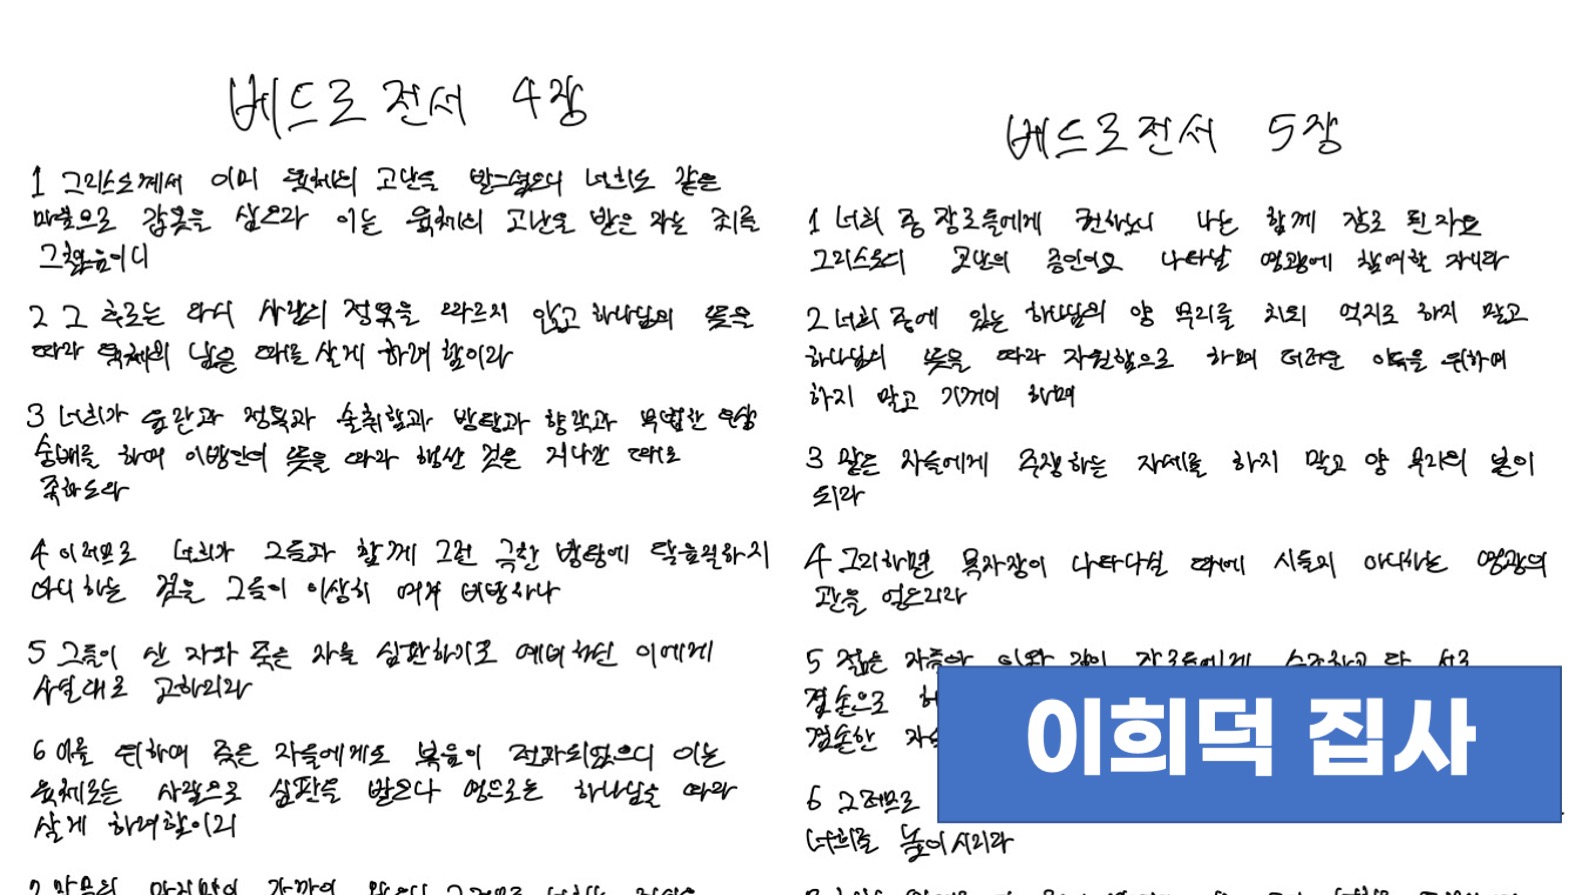 베드로전서 4장
1 그리스도께서 이미 육체의 고난을 받으셨으니 너희도 같은
마음으로 갑옷을 삼으라 이는 육체의 고난을 받은 자는 죄를
그쳤음이니
2 그 후로는 다시 사람의 정욕을 따르지 않고 하나님의 뜻을
따라 육체의 남은 때를 살게 하려 함이라
3 너희가 음란과 정욕과 술취함과 방탕과 향락과 무법한 우상
숭배를 하여 이방인의 뜻을 따라 행한 것은 지나간 때로
족하도다
4 이러므로 너희가 그들과 함께 그런 극한 방탕에 달음질하지
아니하는 것을 그들이 이상히 여겨 비방하나
5 그들이 산 자와 죽은 자를 심판하기로 예비하신 이에게
사실대로 고하리라
6 이를 위하여 죽은 자들에게도 복음이 전파되었으니 이는
육체로는 사람으로 심판을 받으나 영으로는 하나님을 따라
살게 하려 함이라
베드로전서 5장
1 너희 중 장로들에게 권하노니 나는 함께 장로 된 자요
그리스도의 고난의 증인이요 나타날 영광에 참여할 자니라
2 너희 중에 있는 하나님의 양 무리를 치되 억지로 하지 말고
하나님의 뜻을 따라 자원함으로 하며 더러운 이득을 위하여
하지 말고 기꺼이 하며
3 맡은 자들에게 주장하는 자세를 하지 말고 양 무리의 본이
되라
4 그리하면 목자장이 나타나실 때에 시들지 아니하는 영광의
관을 얻으리라
5 젊은 자들아 이와 같이 장로들에게 순종하고 다 서로
겸손으로
겸손한
6 그러므로
너희를 높이시리라
이희덕 집사